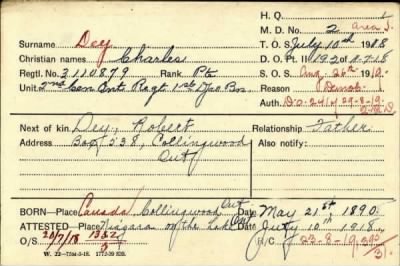 H. Q. 1
M. D. No. 2 area 1.
Surname Dey T. O. S. July 10th 1918
Christian names Charles D. O. Pt. II 192 of 11-7-18
Regtl. No. 3110879 Rank Pte S. O. S. Aug 26th 1919.
Unit 2nd Cen. Ont. Regt. 1st Dpo Bn. Reason Demob.
Auth. D.O. 241 of 29-8-19
Next of kin Dey, Robert Relationship Father
Address Box 538, Collingwood Also notify:
Ont
BORN—Place Canada, Collingwood Ont Date May 21st 1890
ATTESTED—Place Niagara on the Lake Ont Date July 10th 1918
O/S 20/7/18 1382/3 R/C 23-8-19
W. 22—75m-5-18. 1772-39 826.